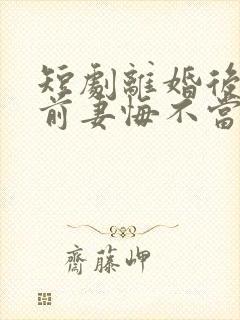 短劇離婚後
前妻悔不當
齊藤岬